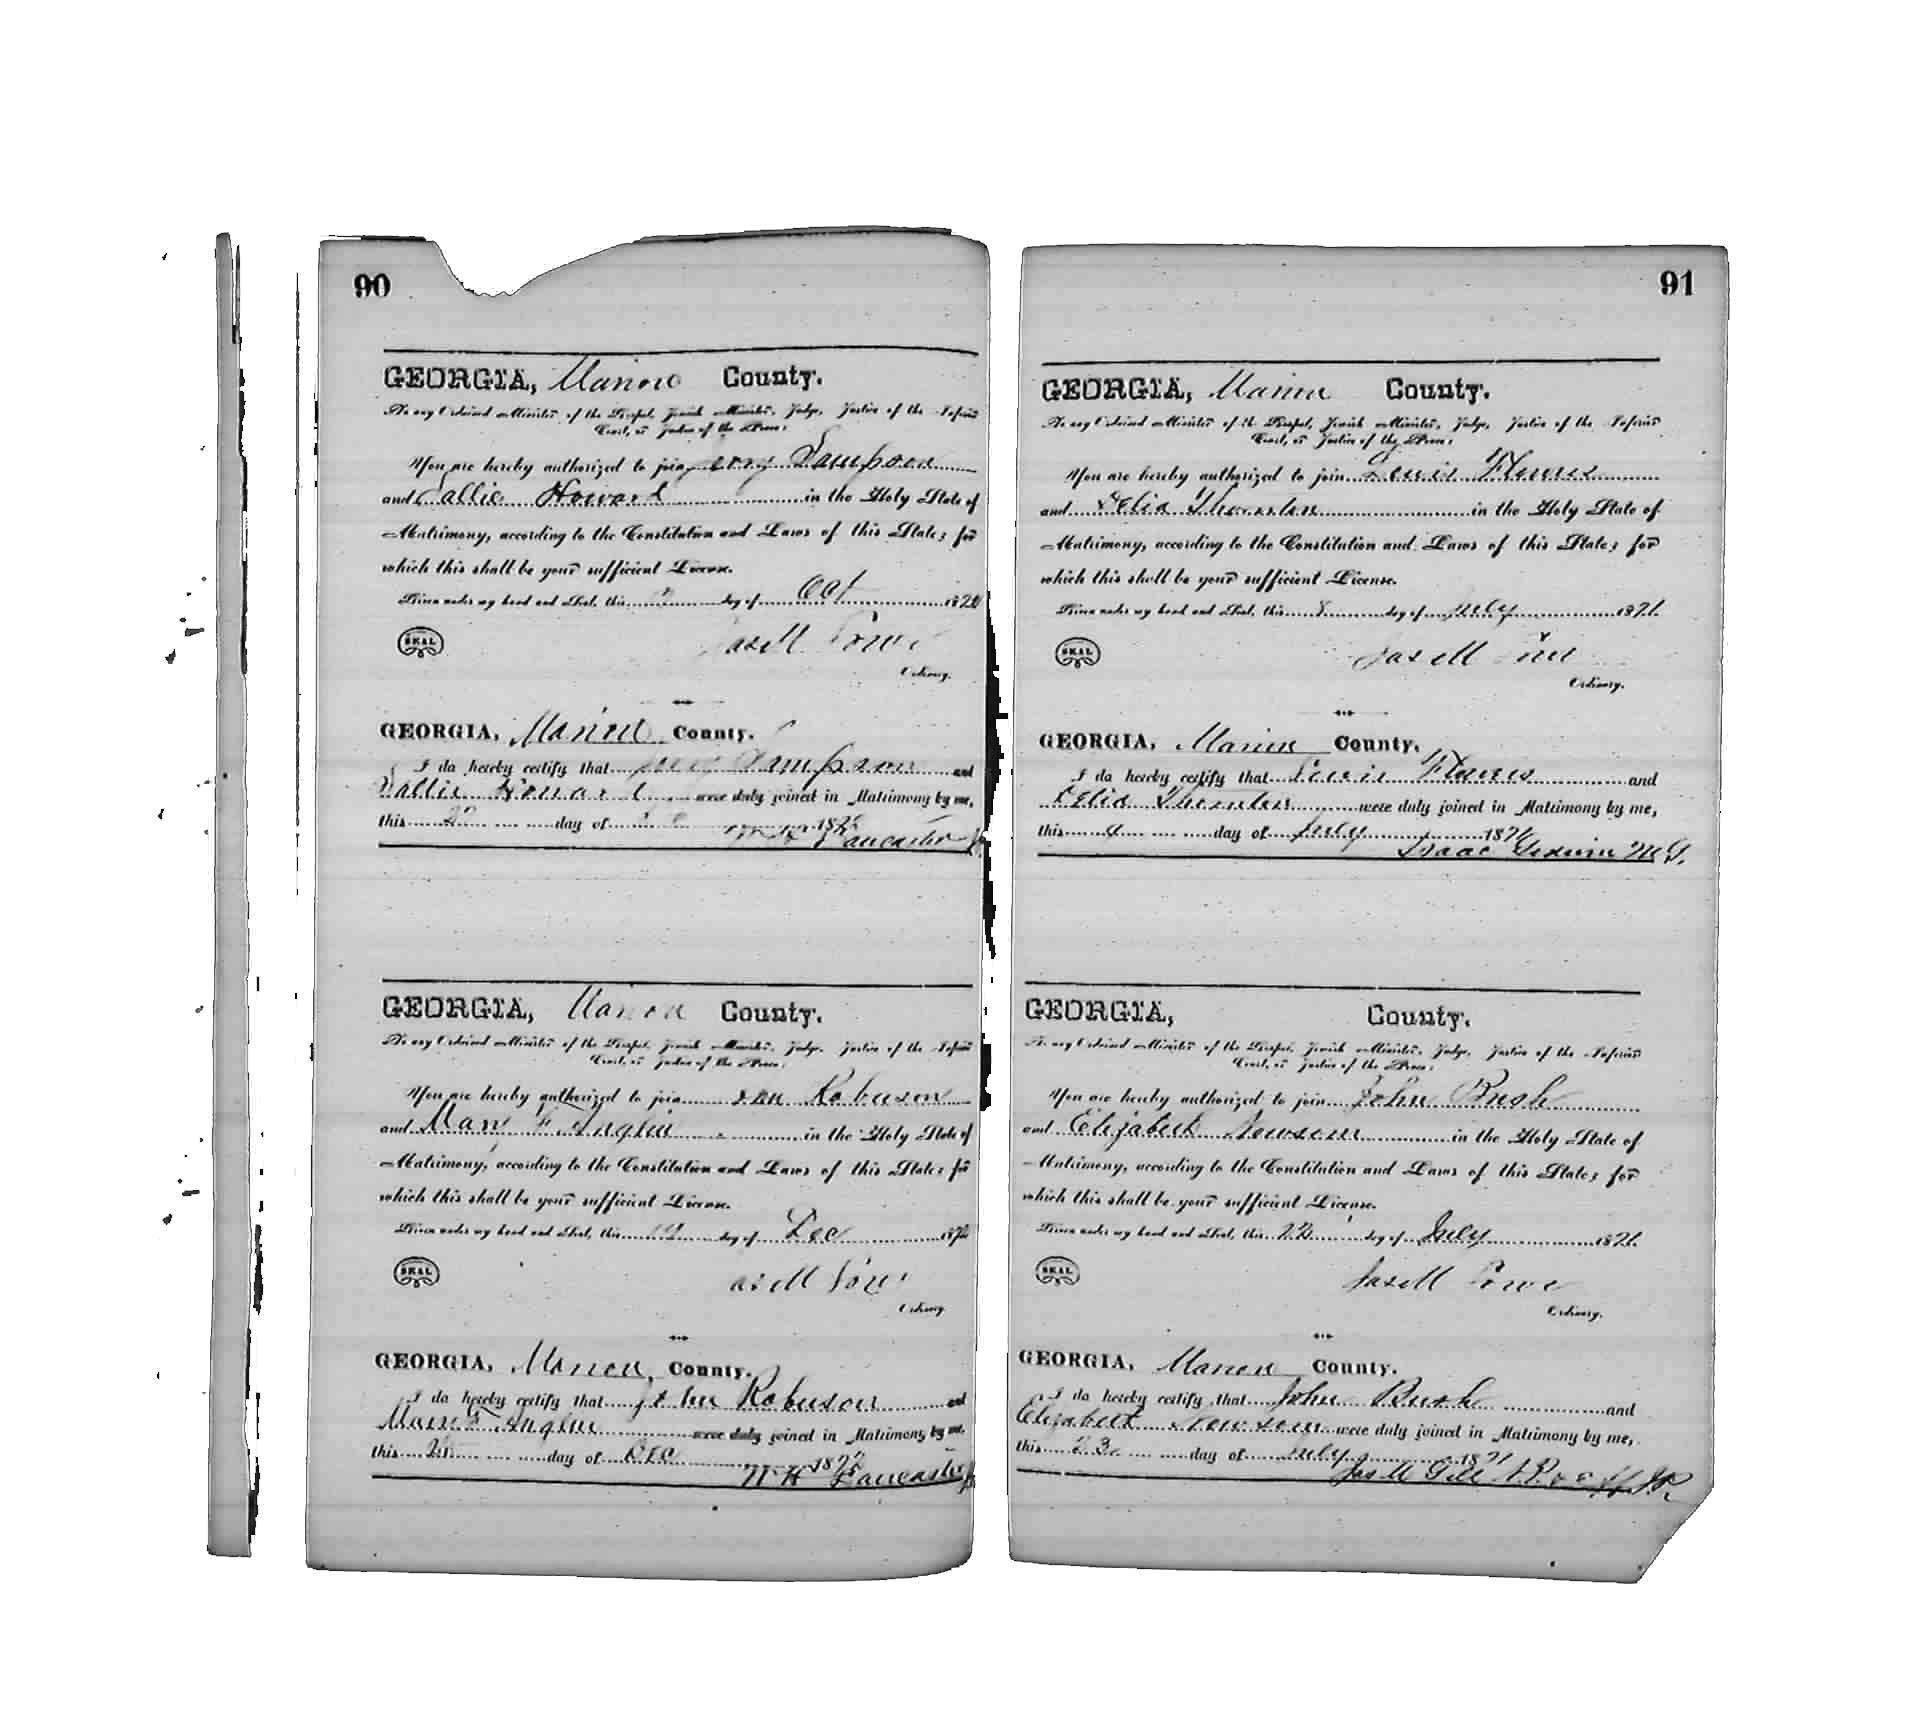 90
GEORGIA, Marion County.
To any Ordained Minister of the Gospel, Jewish Minister, Judge, Justice of the Inferior
Court, or Justice of the Peace:
You are hereby authorized to join Sampson
and Sallie Howard in the Holy State of
Matrimony, according to the Constitution and Laws of this State; for
which this shall be your sufficient License.
Given under my hand and Seal, this day of Oct 1870
SEAL
Jas M Lowe
Ordinary.
GEORGIA, Marion County.
I do hereby certify that Sampson and
Sallie Howard were duly joined in Matrimony by me,
this day of 187
Lancaster
GEORGIA, Marion County.
To any Ordained Minister of the Gospel, Jewish Minister, Judge, Justice of the Inferior
Court, or Justice of the Peace:
You are hereby authorized to join Robinson
and Mary F. Anglin in the Holy State of
Matrimony, according to the Constitution and Laws of this State; for
which this shall be your sufficient License.
Given under my hand and Seal, this day of Dec 187
SEAL
Jas M Lowe
Ordinary.
GEORGIA, Marion County.
I do hereby certify that John Robinson and
Mary F. Anglin were duly joined in Matrimony by me,
this day of Dec 187
W H Lancaster
91
GEORGIA, Marion County.
To any Ordained Minister of the Gospel, Jewish Minister, Judge, Justice of the Inferior
Court, or Justice of the Peace:
You are hereby authorized to join Lewis Flowers
and Celia Thornton in the Holy State of
Matrimony, according to the Constitution and Laws of this State; for
which this shall be your sufficient License.
Given under my hand and Seal, this 8 day of July 1871.
SEAL
Jas M Lowe
Ordinary.
GEORGIA, Marion County.
I do hereby certify that Lewis Flowers and
Celia Thornton were duly joined in Matrimony by me,
this day of July 1871
Isaac M G.
GEORGIA, County.
To any Ordained Minister of the Gospel, Jewish Minister, Judge, Justice of the Inferior
Court, or Justice of the Peace:
You are hereby authorized to join John Bush
and Elizabeth Newsom in the Holy State of
Matrimony, according to the Constitution and Laws of this State; for
which this shall be your sufficient License.
Given under my hand and Seal, this 22 day of July 1871.
SEAL
Jas M Lowe
Ordinary.
GEORGIA, Marion County.
I do hereby certify that John Bush and
Elizabeth Newsom were duly joined in Matrimony by me,
this 23 day of July 1871
Jas M Gill N.P. & Ex off J.P.